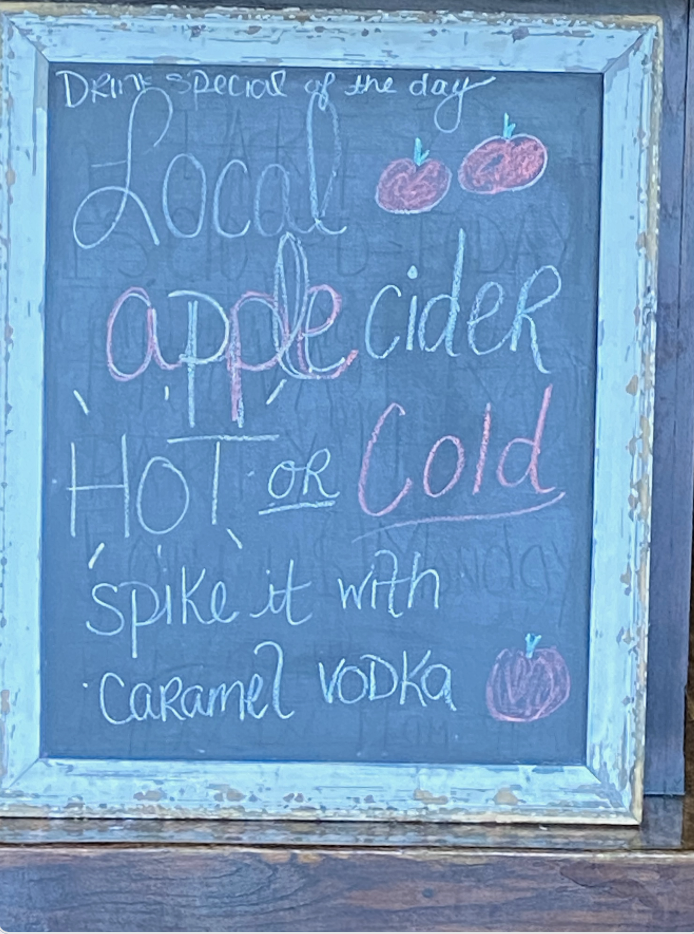 DRINK special of the day
Local
apple cider
HOT OR Cold
SPIKE it with
CARAMEL VODKA